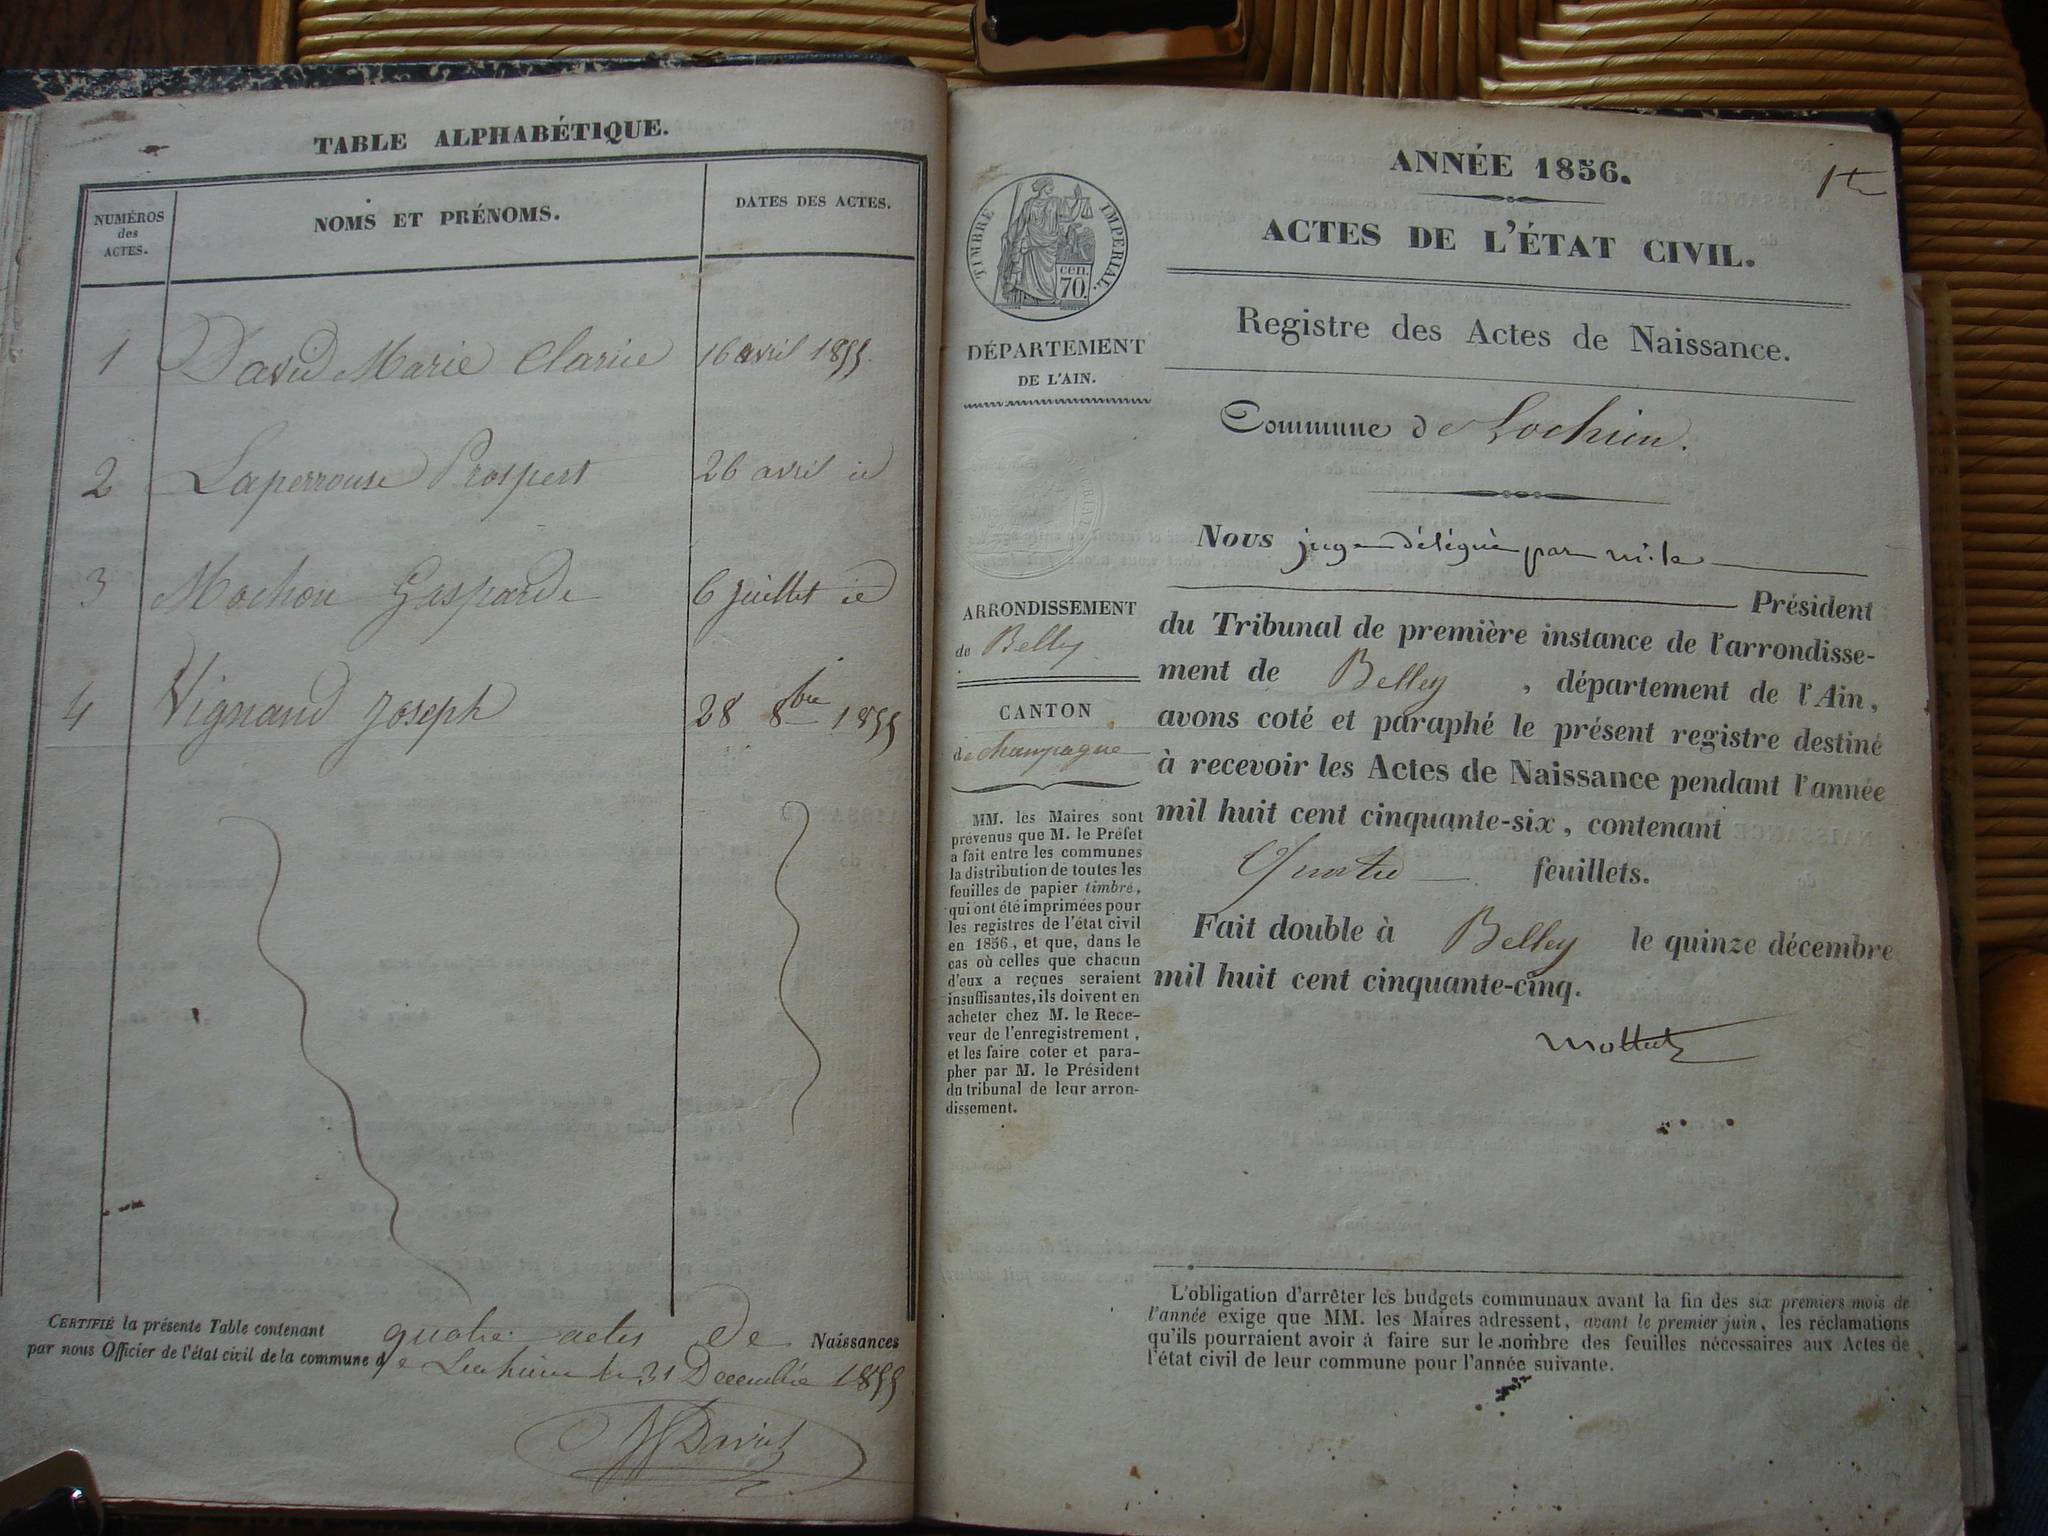 TABLE ALPHABÉTIQUE.
NUMÉROS des ACTES. NOMS ET PRÉNOMS. DATES DES ACTES.
1 David Marie Clarice 16 avril 1855.
2 Laperrouse Prospert 26 avril id
3 Mochon Gasparde 6 juillet id
4 Vignaud Joseph 28 8bre 1855
CERTIFIÉ la présente Table contenant quatre actes de Naissances
par nous Officier de l'état civil de la commune de Lochieu le 31 Decembre 1855
David
ANNÉE 1856.
ACTES DE L'ÉTAT CIVIL.
Registre des Actes de Naissance.
TIMBRE IMPERIAL.
cen.
70.
DÉPARTEMENT
DE L'AIN.
Commune de Lochieu.
ARRONDISSEMENT
de Belley
CANTON
de champagne
MM. les Maires sont
prévenus que M. le Préfet
a fait entre les communes
la distribution de toutes les
feuilles de papier timbré,
qui ont été imprimées pour
les registres de l'état civil
en 1856, et que, dans le
cas où celles que chacun
d'eux a reçues seraient
insuffisantes, ils doivent en
acheter chez M. le Rece-
veur de l'enregistrement,
et les faire coter et para-
pher par M. le Président
du tribunal de leur arron-
dissement.
Nous juge délégué par mr le
Président
du Tribunal de première instance de l'arrondisse-
ment de Belley, département de l'Ain,
avons coté et paraphé le présent registre destiné
à recevoir les Actes de Naissance pendant l'année
mil huit cent cinquante-six, contenant
Quatre feuillets.
Fait double à Belley le quinze décembre
mil huit cent cinquante-cinq.
L'obligation d'arrêter les budgets communaux avant la fin des six premiers mois de
l'année exige que MM. les Maires adressent, avant le premier juin, les réclamations
qu'ils pourraient avoir à faire sur le nombre des feuilles nécessaires aux Actes de
l'état civil de leur commune pour l'année suivante.